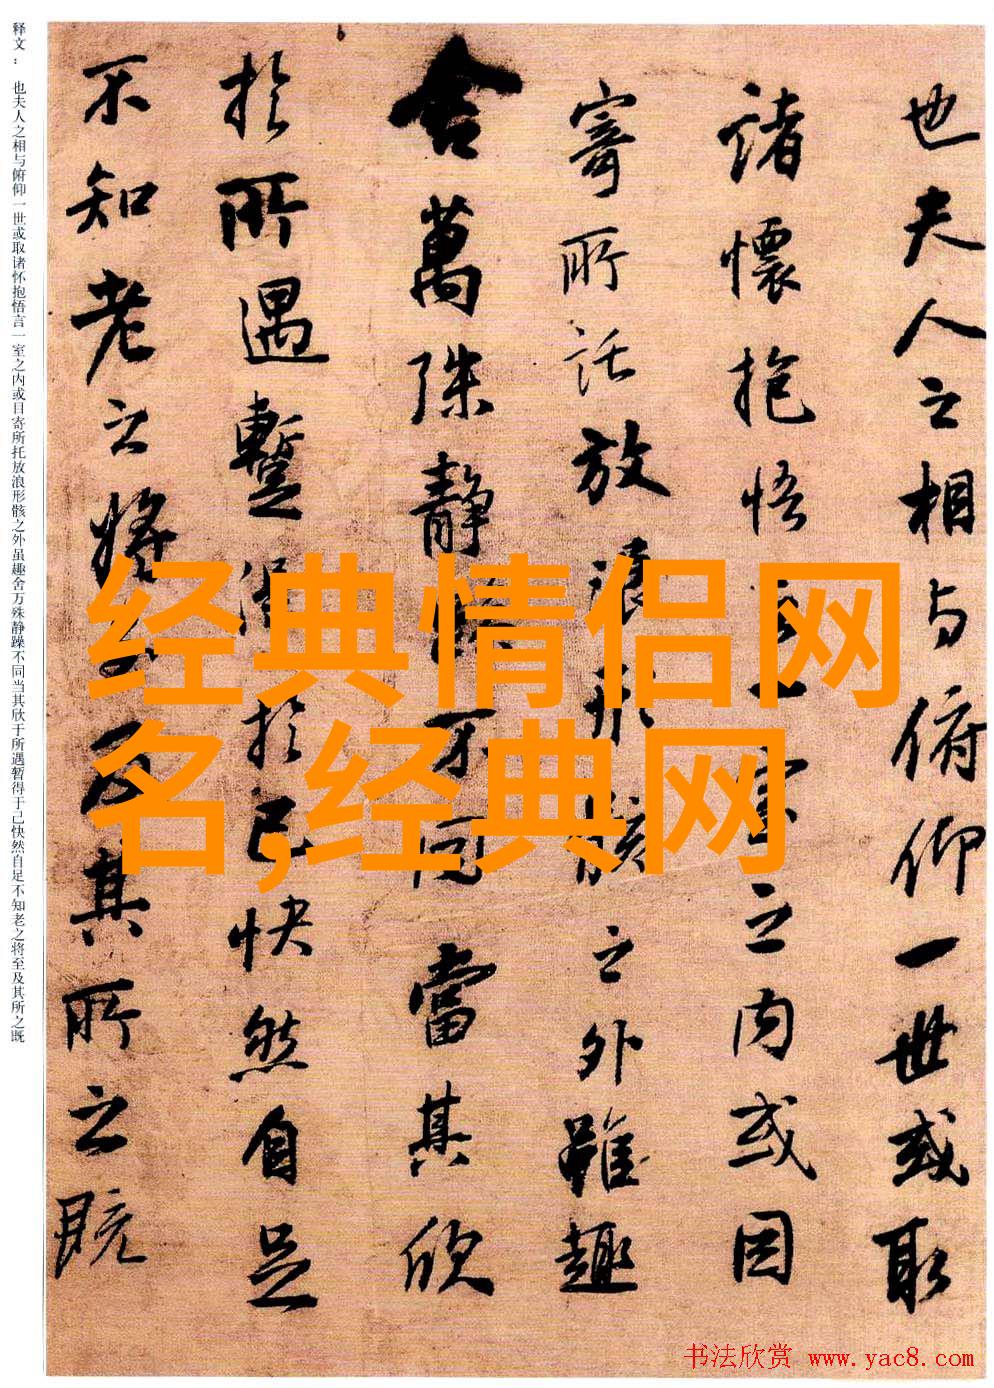 也夫人之相与俯仰一世或取
諸懷抱悟言一室之内或因
寄所託放浪形骸之外雖趣
舍萬殊静躁不同當其欣
於所遇暫得於己快然自足
不知老之將至及其所之既
释文：也夫人之相与俯仰一世或取诸怀抱悟言一室之内或目寄所托放浪形骸之外虽趣舍万殊静躁不同当其欣于所遇暂得于己快然自足不知老之将至及其所之既
经典情侣网
名,经典网
书法欣赏 www.yac8.com